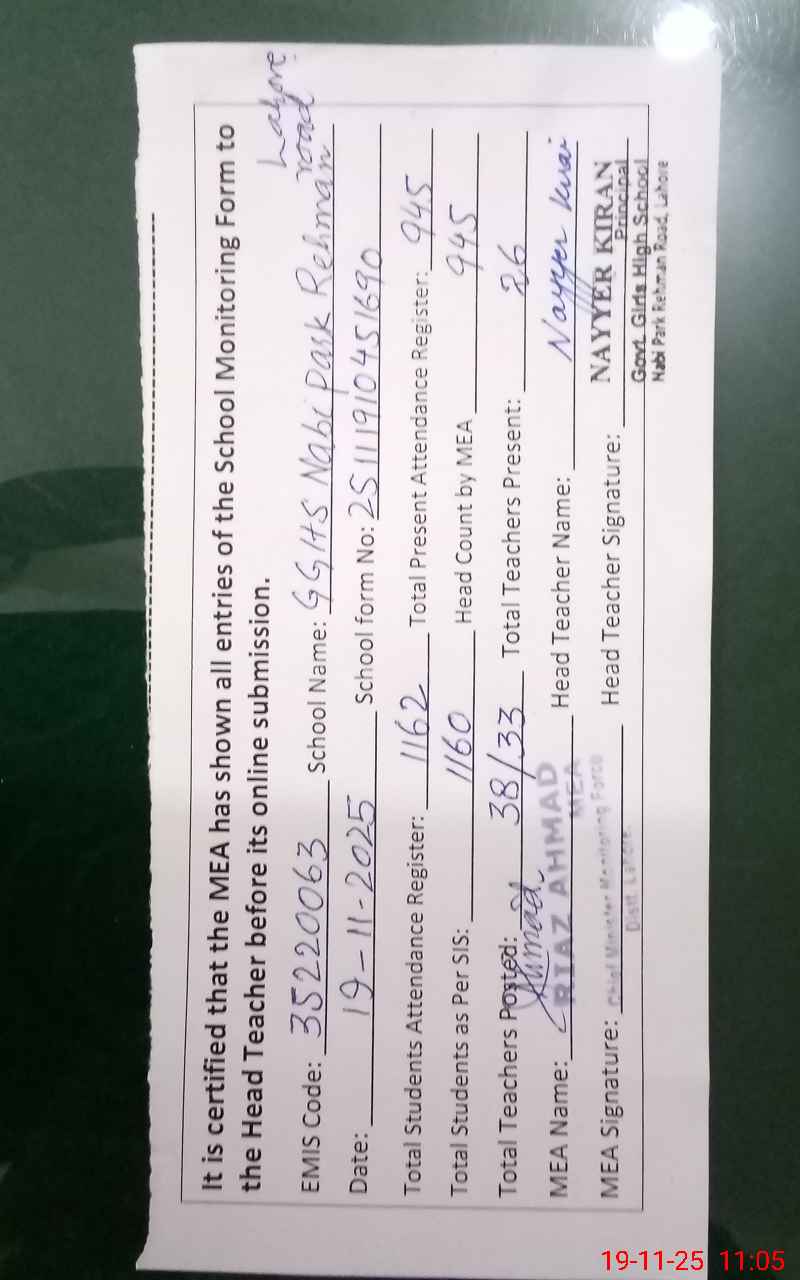 It is certified that the MEA has shown all entries of the School Monitoring Form to
the Head Teacher before its online submission.
EMIS Code: 35220063 School Name: GGHS Nabi park Rehman road Lahore
Date: 19-11-2025 School form No: 2511191045 1690
Total Students Attendance Register: 1162 Total Present Attendance Register: 945
Total Students as Per SIS: 1160 Head Count by MEA 945
Total Teachers Posted: 38/33 Total Teachers Present: 26
MEA Name: RIAZ AHMAD Head Teacher Name: Nayyer
MEA
MEA Signature: Chief Minister Monitoring Force Head Teacher Signature: NAYYER KIRAN
Distt. Lahore.
Principal
Govt. Girls High School
Nabi Park Rehman Road, Lahore
19-11-25 11:05